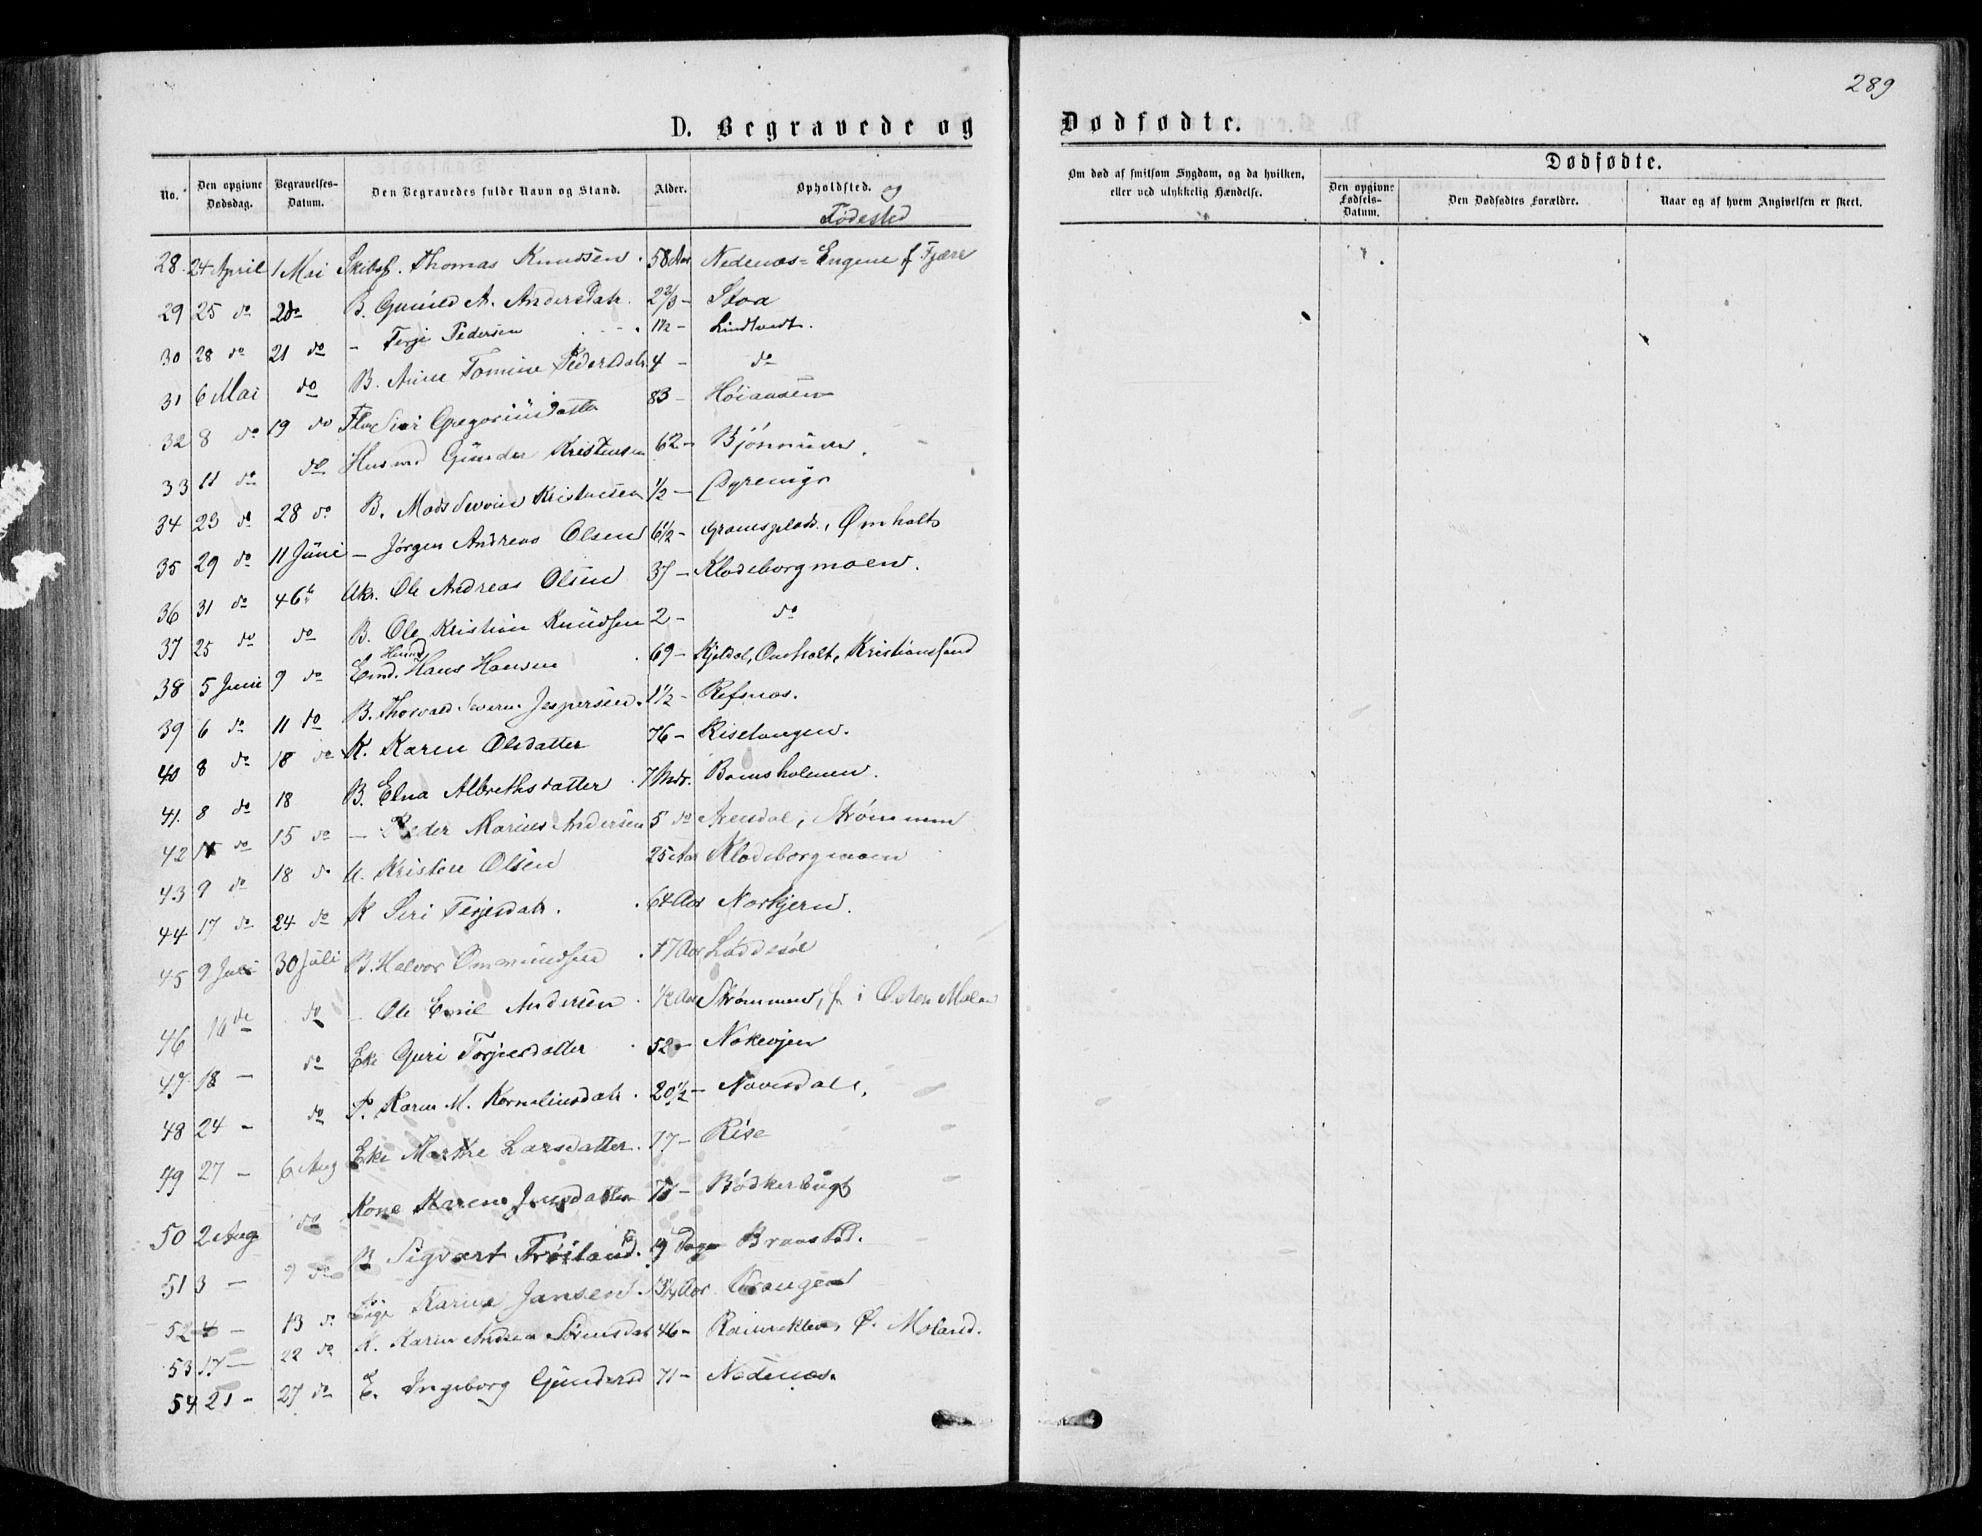 289
D. Begravede og Dødfødte.
No. Den opgivne Dødsdag. Begravelses-Datum. Den Begravedes fulde Navn og Stand. Alder. Opholdsted. og Fødested
Om død af smitsom Sygdom, og da hvilken, eller ved ulykkelig Hændelse.
Dødfødte.
Den opgivne Fødsels-Datum. Den Dødfødtes Forældre. Naar og af hvem Angivelsen er skeet.
28 24 April 1 Mai Thomas Knudsen 58 Aar Nedenæs-Engene f Fjære
29 25 do B. Gunild A. Andersdatr. 2 2/3 - Stoa
30 28 do 21 do - Terje Pedersen 1½ - Lindtvedt.
31 6 Mai do B. Anne Tomine Pedersdatr. 4 - do
32 8 do 19 do Siri Gregoriusdatter 83 -
33 11 do do Husmd Gunder Kristensen 62 -
34 23 do 28 do B. Mads Kristensen ½ -
35 29 do 11 Juni - Jørgen Andreas Olsen 6½ - Ømholt
36 31 do Ole Andreas Olsen 37 - Klodeborgmoen.
37 25 do do B. Ole Kristian Knudsen 2 - do
38 5 Juni 9 do Hans Hansen 69 - Omholt, Kristianssand
39 6 do 11 do B. Thorvald Severin Jespersen. 1½ - Refsnæs.
40 8 do 18 do K. Karen Olsdatter 76 - Riselangen.
41. 8 do 18 B. Elna Albrethsdatter 7 Mdr. Bomsholmen.
42 do 15 do - Peder Marius Andersen 5 do Arendal, Strømmen
43 9 do 18 do U. Kristen Olsen 25 Aar Klodeborgmoen
44 17 do 24 do K Siri Terjesdatr. 64 Aar Norkjern.
45 9 Juli 30 Juli B. Halvor Ommundsen 17 Aar Løddesøl
46 16 do do - Ole Emil Andersen ½ Aar Strømmen, f i Østen Molan
47 18 - do Eke Guri Torjusdatter 52 -
48 24 - do P. Karen M. Korneliusdatr. 20½ - Naversdal,
49 27 - 6 Aug Eke Marthe Larsdatter. 77 - Rise
50 2 Aug do Kone Karen Jensdatter Bødkerbugt
51 3 - 9 do B Sigvart Frøiland. 19 Dage Braastad.
52 4 - 13 do Pige Karine Jansen. Krangen
53 17 - 22 do K. Karen Andrea Sørensdatr 46 - Ø. Moland.
54 21 - 27 do E. Ingeborg Gundersd 71 - Nedenæs.